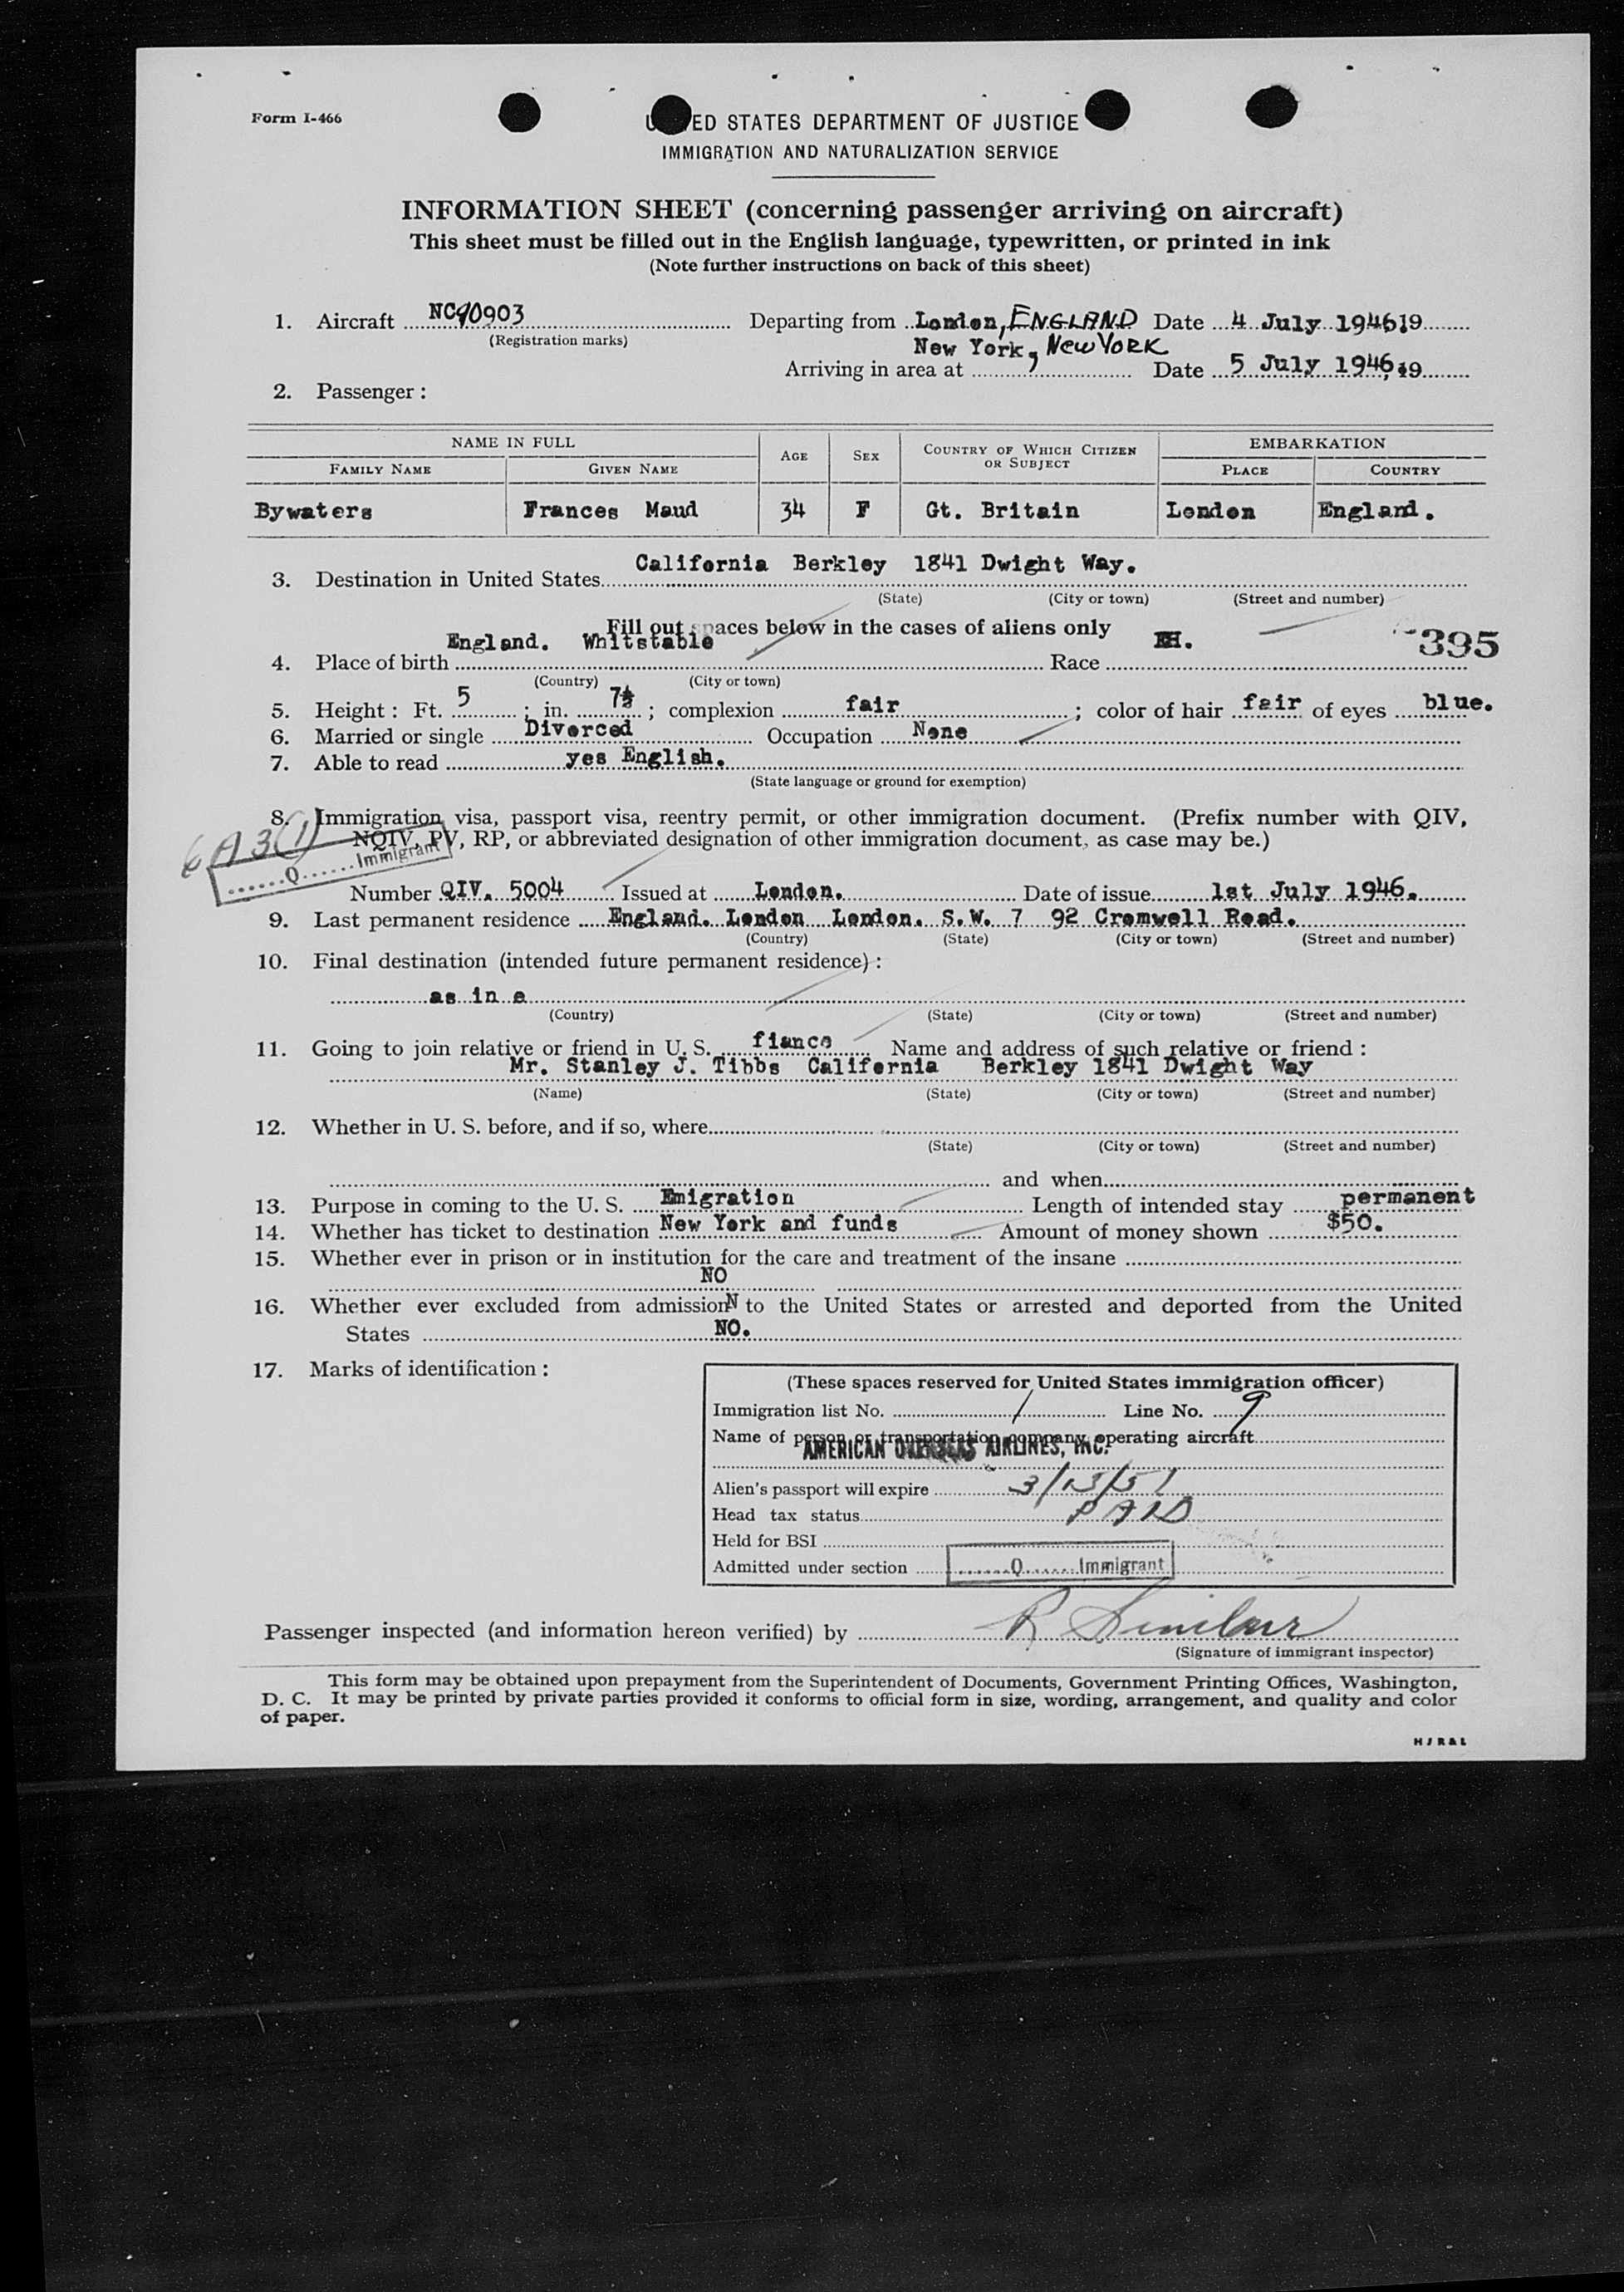 Form I-466
UNITED STATES DEPARTMENT OF JUSTICE
IMMIGRATION AND NATURALIZATION SERVICE
INFORMATION SHEET (concerning passenger arriving on aircraft)
This sheet must be filled out in the English language, typewritten, or printed in ink
(Note further instructions on back of this sheet)
1. Aircraft NC90903 Departing from London, ENGLAND Date 4 July 1946, 19
(Registration marks)
New York, NEW YORK
Arriving in area at Date 5 July 1946, 19
2. Passenger:
NAME IN FULL AGE SEX COUNTRY OF WHICH CITIZEN OR SUBJECT EMBARKATION
FAMILY NAME GIVEN NAME PLACE COUNTRY
Bywaters Frances Maud 34 F Gt. Britain London England.
California Berkley 1841 Dwight Way.
3. Destination in United States
(State) (City or town) (Street and number)
Fill out spaces below in the cases of aliens only
England. Whitstable 395
4. Place of birth Race
(Country) (City or town)
5. Height: Ft. 5; in. 7½; complexion fair; color of hair fair of eyes blue.
6. Married or single Divorced Occupation None
7. Able to read yes English.
(State language or ground for exemption)
8. Immigration visa, passport visa, reentry permit, or other immigration document. (Prefix number with QIV,
NQIV, PV, RP, or abbreviated designation of other immigration document, as case may be.)
6A3(1)
Q Immigrant
Number QIV. 5004 Issued at London. Date of issue 1st July 1946.
9. Last permanent residence England. London London. S.W. 7 92 Cromwell Road.
(Country) (State) (City or town) (Street and number)
10. Final destination (intended future permanent residence):
as in e
(Country) (State) (City or town) (Street and number)
11. Going to join relative or friend in U. S. fiance Name and address of such relative or friend:
Mr. Stanley J. Tibbs California Berkley 1841 Dwight Way
(Name) (State) (City or town) (Street and number)
12. Whether in U. S. before, and if so, where
(State) (City or town) (Street and number)
and when
13. Purpose in coming to the U. S. Emigration Length of intended stay permanent
14. Whether has ticket to destination New York and funds Amount of money shown $50.
15. Whether ever in prison or in institution for the care and treatment of the insane
NO
16. Whether ever excluded from admission N to the United States or arrested and deported from the United
States NO.
17. Marks of identification:
(These spaces reserved for United States immigration officer)
Immigration list No. 1 Line No. 9
Name of person or transportation company operating aircraft
AMERICAN OVERSEAS AIRLINES, INC.
Alien's passport will expire 3/13/51
Head tax status PAID
Held for BSI
Admitted under section Q Immigrant
Passenger inspected (and information hereon verified) by R Sinclair
(Signature of immigrant inspector)
This form may be obtained upon prepayment from the Superintendent of Documents, Government Printing Offices, Washington,
D. C. It may be printed by private parties provided it conforms to official form in size, wording, arrangement, and quality and color
of paper.
HJR&L